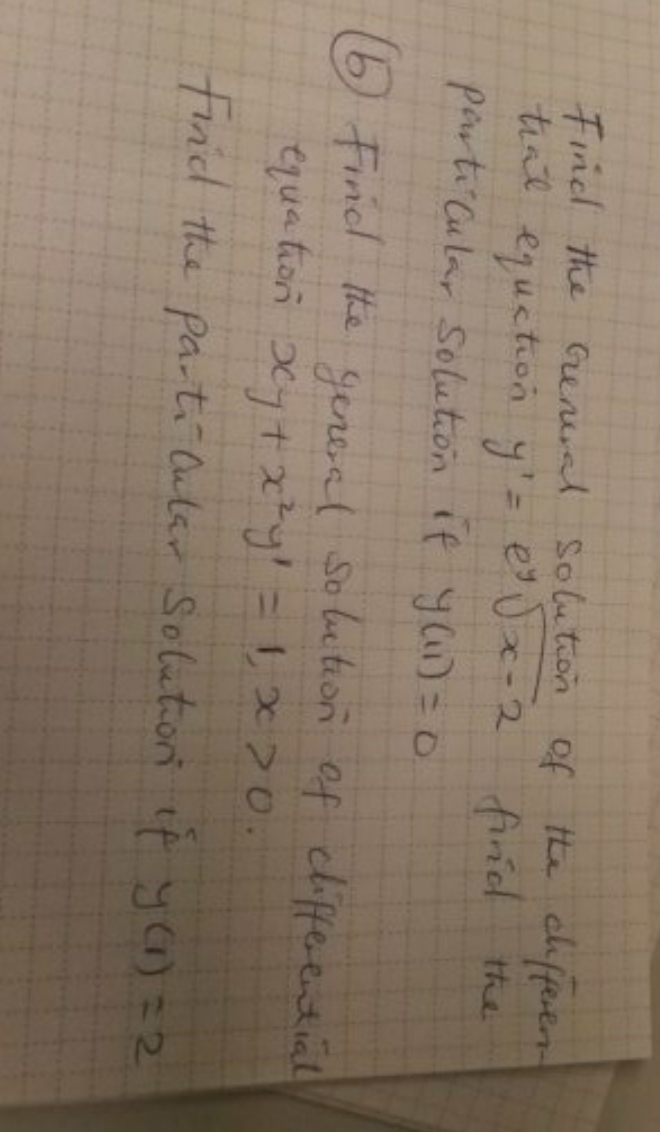 Find the General Solution of the differen-
tial equation y' = e^y √(x-2) find the
particular Solution if y(11) = 0
(b) Find the general solution of differential
equation xy + x²y' = 1, x > 0.
Find the particular Solution if y(1) = 2